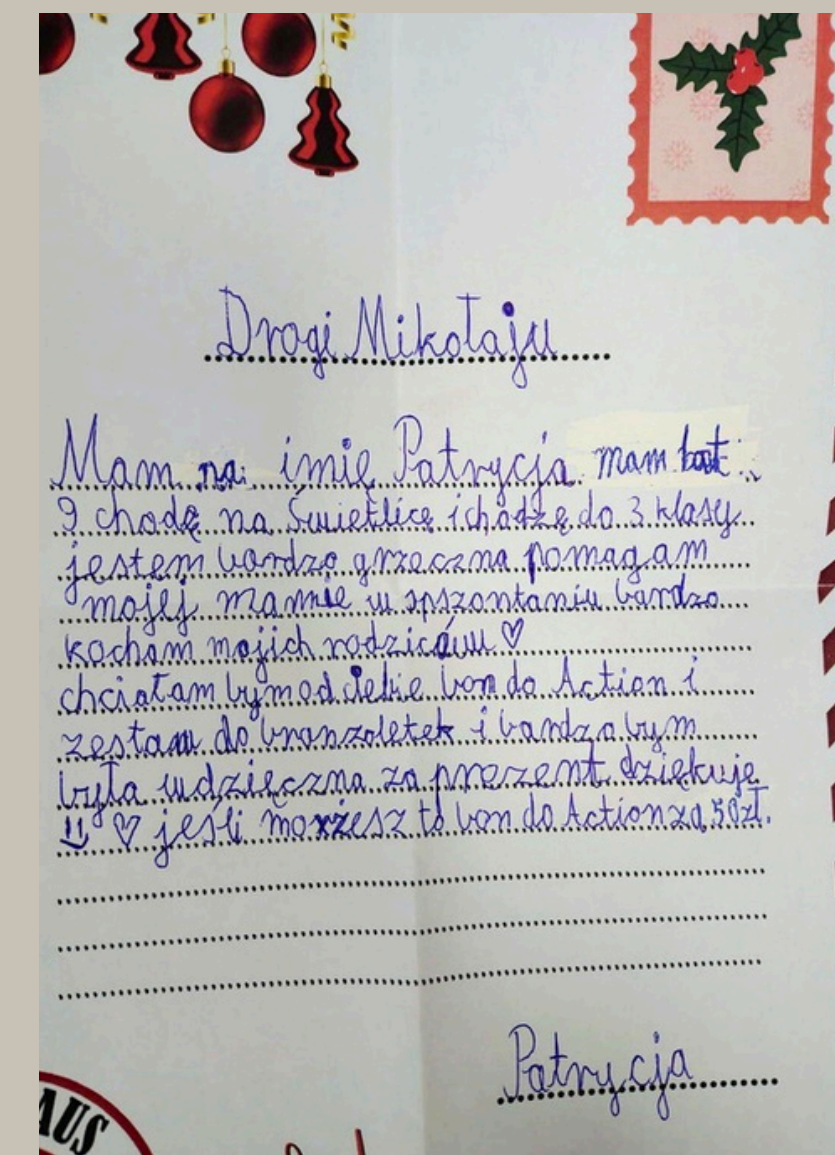 Drogi Mikołaju
Mam na imię Patrycja mam lat
9 chodę na Świetlicę i chodzę do 3 klasy
jestem bardzo grzeczna pomagam
mojej mamie w spszontaniu bardzo
kocham mojich rodziców ♡
chciałam bym od ciebie bon do Action i
zestaw do branzoletek i bardzo bym
była wdzięczna za prezent dziękuje
♡ jeśli możesz to bon do Action za 50zł.
Patrycja
AUS